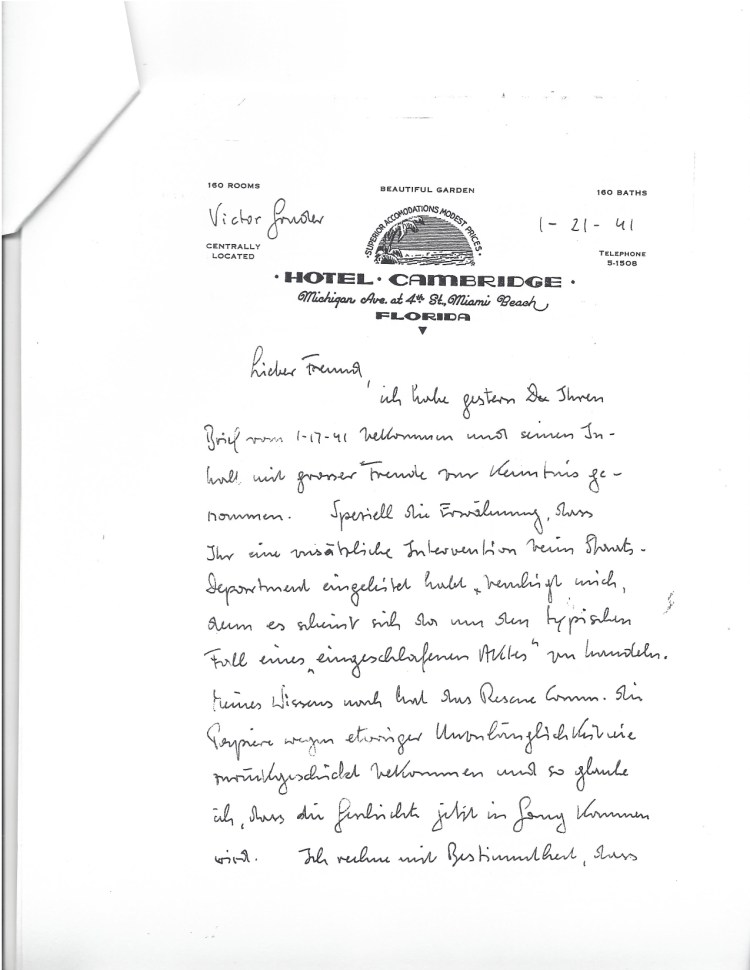 160 ROOMS
BEAUTIFUL GARDEN
160 BATHS
Victor
1-21-41
SUPERIOR ACCOMODATIONS MODEST PRICES
CENTRALLY
LOCATED
TELEPHONE
5-1508
· HOTEL · CAMBRIDGE ·
Michigan Ave. at 4th St., Miami Beach
FLORIDA
Lieber Freund,
ich habe gestern Ihren
Brief vom 1-17-41 bekommen und seinen In-
halt mit grosser Freude zur Kenntnis ge-
nommen. Speziell die Erwähnung, dass
Ihr eine zusätzliche Intervention beim Staats-
Department eingeleitet habt, beruhigt mich,
denn es scheint sich da um den typischen
Fall eines "eingeschlafenen Aktes" zu handeln.
Meines Wissens nach hat das Rescue Comm. die
Papiere wegen etwaiger Unzulänglichkeit nie
zurückgeschickt bekommen und so glaube
ich, dass die Geschichte jetzt in Gang kommen
wird. Ich rechne mit Bestimmtheit, dass